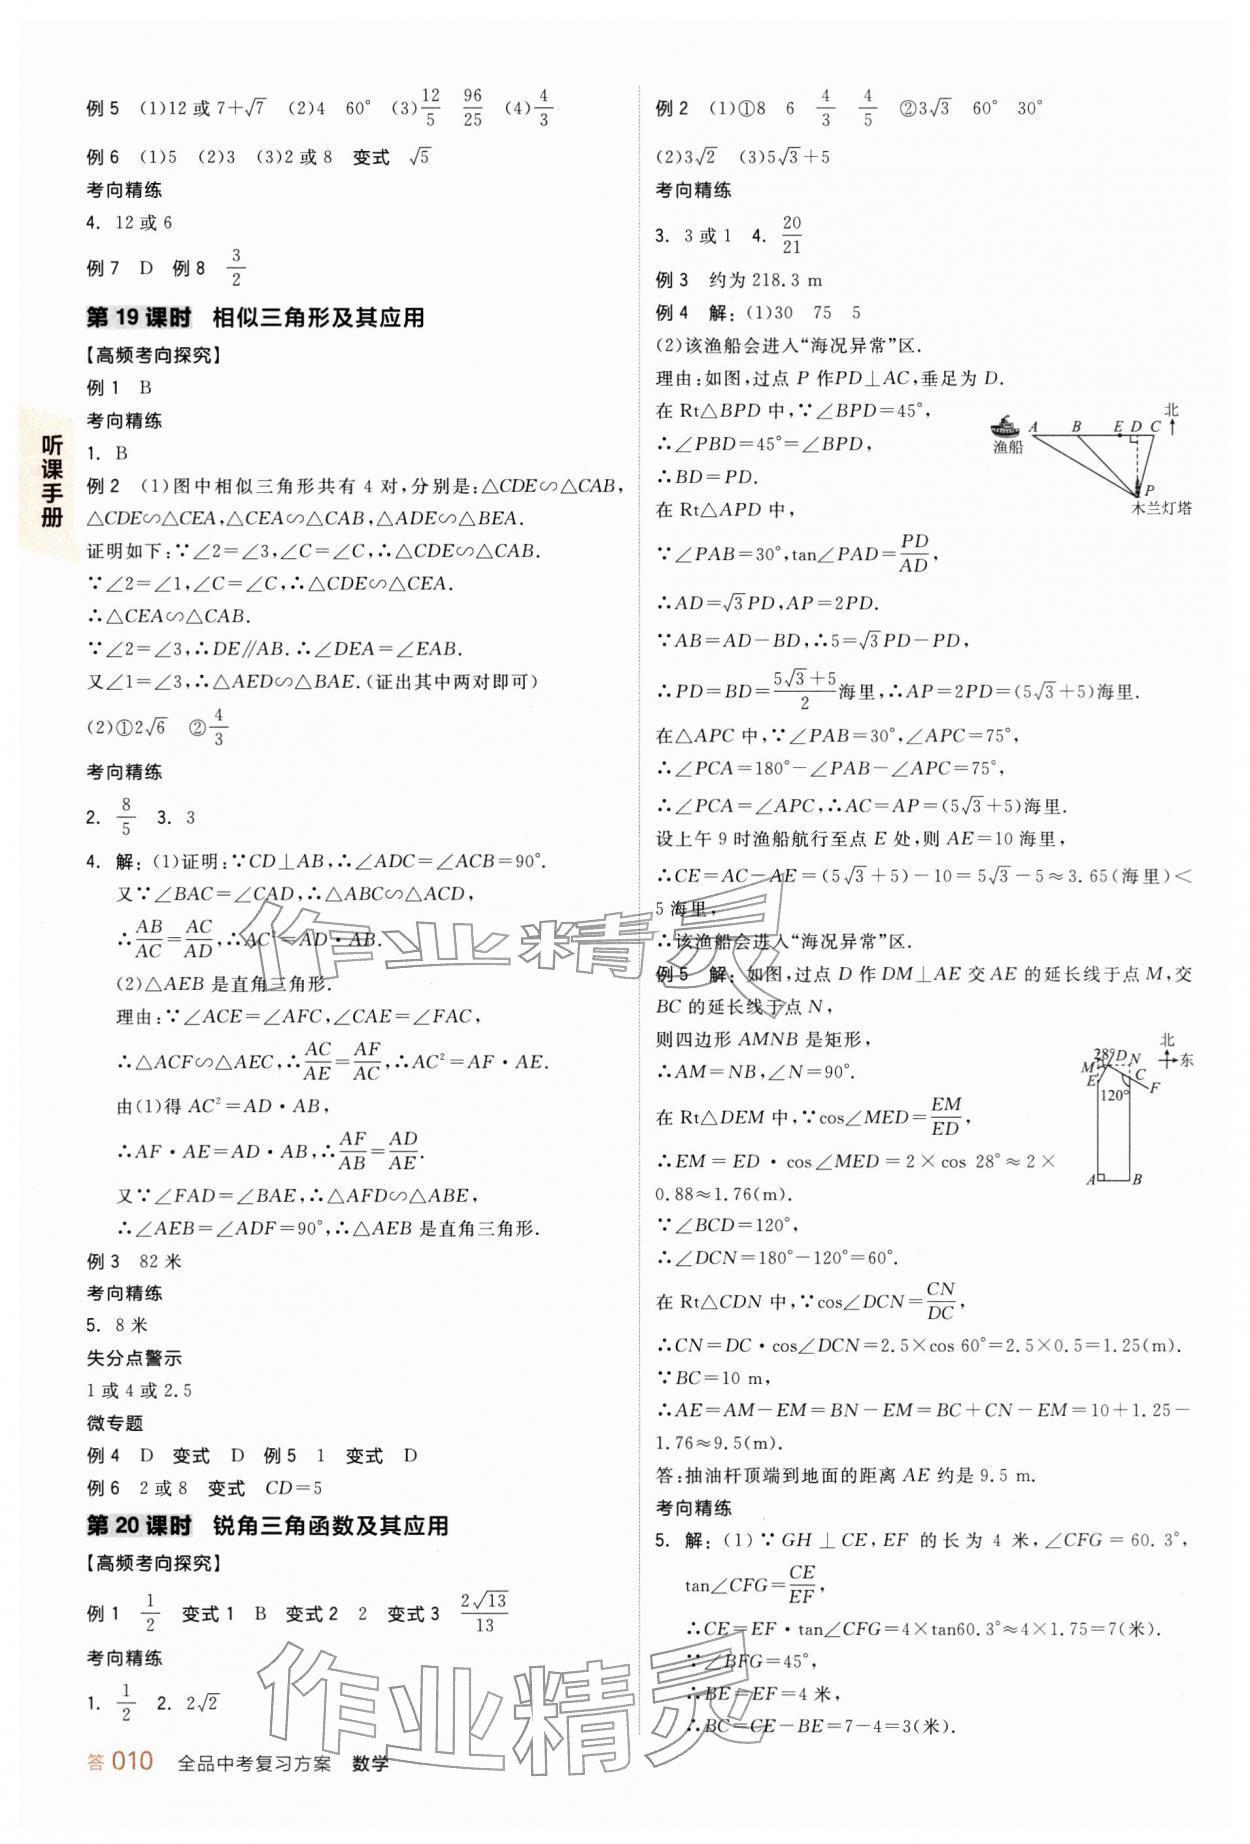 例5 (1)12或7+√7 (2)4 60° (3)12/5 96/25 (4)4/3
例6 (1)5 (2)3 (3)2或8 变式 √5
考向精练
4. 12或6
例7 D 例8 3/2
第19课时 相似三角形及其应用
【高频考向探究】
例1 B
考向精练
1. B
例2 (1)图中相似三角形共有4对,分别是:△CDE∽△CAB,
△CDE∽△CEA,△CEA∽△CAB,△ADE∽△BEA.
证明如下:∵∠2=∠3,∠C=∠C,∴△CDE∽△CAB.
∵∠2=∠1,∠C=∠C,∴△CDE∽△CEA.
∴△CEA∽△CAB.
∵∠2=∠3,∴DE∥AB.∴∠DEA=∠EAB.
又∠1=∠3,∴△AED∽△BAE.(证出其中两对即可)
(2)①2√6 ②4/3
考向精练
2. 8/5 3. 3
4. 解:(1)证明:∵CD⊥AB,∴∠ADC=∠ACB=90°.
又∵∠BAC=∠CAD,∴△ABC∽△ACD,
∴AB/AC=AC/AD,∴AC²=AD·AB.
(2)△AEB是直角三角形.
理由:∵∠ACE=∠AFC,∠CAE=∠FAC,
∴△ACF∽△AEC,∴AC/AE=AF/AC,∴AC²=AF·AE.
由(1)得AC²=AD·AB,
∴AF·AE=AD·AB,∴AF/AB=AD/AE.
又∵∠FAD=∠BAE,∴△AFD∽△ABE,
∴∠AEB=∠ADF=90°,∴△AEB是直角三角形.
例3 82米
考向精练
5. 8米
失分点警示
1或4或2.5
微专题
例4 D 变式 D 例5 1 变式 D
例6 2或8 变式 CD=5
第20课时 锐角三角函数及其应用
【高频考向探究】
例1 1/2 变式1 B 变式2 2 变式3 2√13/13
考向精练
1. 1/2 2. 2√2
答 010 全品中考复习方案 数学
听课手册
例2 (1)①8 6 4/3 4/5 ②3√3 60° 30°
(2)3√2 (3)5√3+5
考向精练
3. 3或1 4. 20/21
例3 约为218.3 m
例4 解:(1)30 75 5
(2)该渔船会进入“海况异常”区.
理由:如图,过点P作PD⊥AC,垂足为D.
在Rt△BPD中,∵∠BPD=45°,
∴∠PBD=45°=∠BPD,
∴BD=PD.
在Rt△APD中,
北
A B E D C
渔船
P
木兰灯塔
∵∠PAB=30°,tan∠PAD=PD/AD,
∴AD=√3PD,AP=2PD.
∵AB=AD−BD,∴5=√3PD−PD,
∴PD=BD=(5√3+5)/2海里,∴AP=2PD=(5√3+5)海里.
在△APC中,∵∠PAB=30°,∠APC=75°,
∴∠PCA=180°−∠PAB−∠APC=75°,
∴∠PCA=∠APC,∴AC=AP=(5√3+5)海里.
设上午9时渔船航行至点E处,则AE=10海里,
∴CE=AC−AE=(5√3+5)−10=5√3−5≈3.65(海里)<
5海里,
∴该渔船会进入“海况异常”区.
例5 解:如图,过点D作DM⊥AE交AE的延长线于点M,交
BC的延长线于点N,
则四边形AMNB是矩形,
∴AM=NB,∠N=90°.
在Rt△DEM中,∵cos∠MED=EM/ED,
∴EM=ED·cos∠MED=2×cos 28°≈2×
0.88≈1.76(m).
北
东
28° D N
M C
E F
120°
A B
∵∠BCD=120°,
∴∠DCN=180°−120°=60°.
在Rt△CDN中,∵cos∠DCN=CN/DC,
∴CN=DC·cos∠DCN=2.5×cos 60°=2.5×0.5=1.25(m).
∵BC=10 m,
∴AE=AM−EM=BN−EM=BC+CN−EM=10+1.25−
1.76≈9.5(m).
答:抽油杆顶端到地面的距离AE约是9.5 m.
考向精练
5. 解:(1)∵GH⊥CE,EF的长为4米,∠CFG=60.3°,
tan∠CFG=CE/EF,
∴CE=EF·tan∠CFG=4×tan60.3°≈4×1.75=7(米).
∵∠BFG=45°,
∴BE=EF=4米,
∴BC=CE−BE=7−4=3(米).
作业精灵
作业精灵